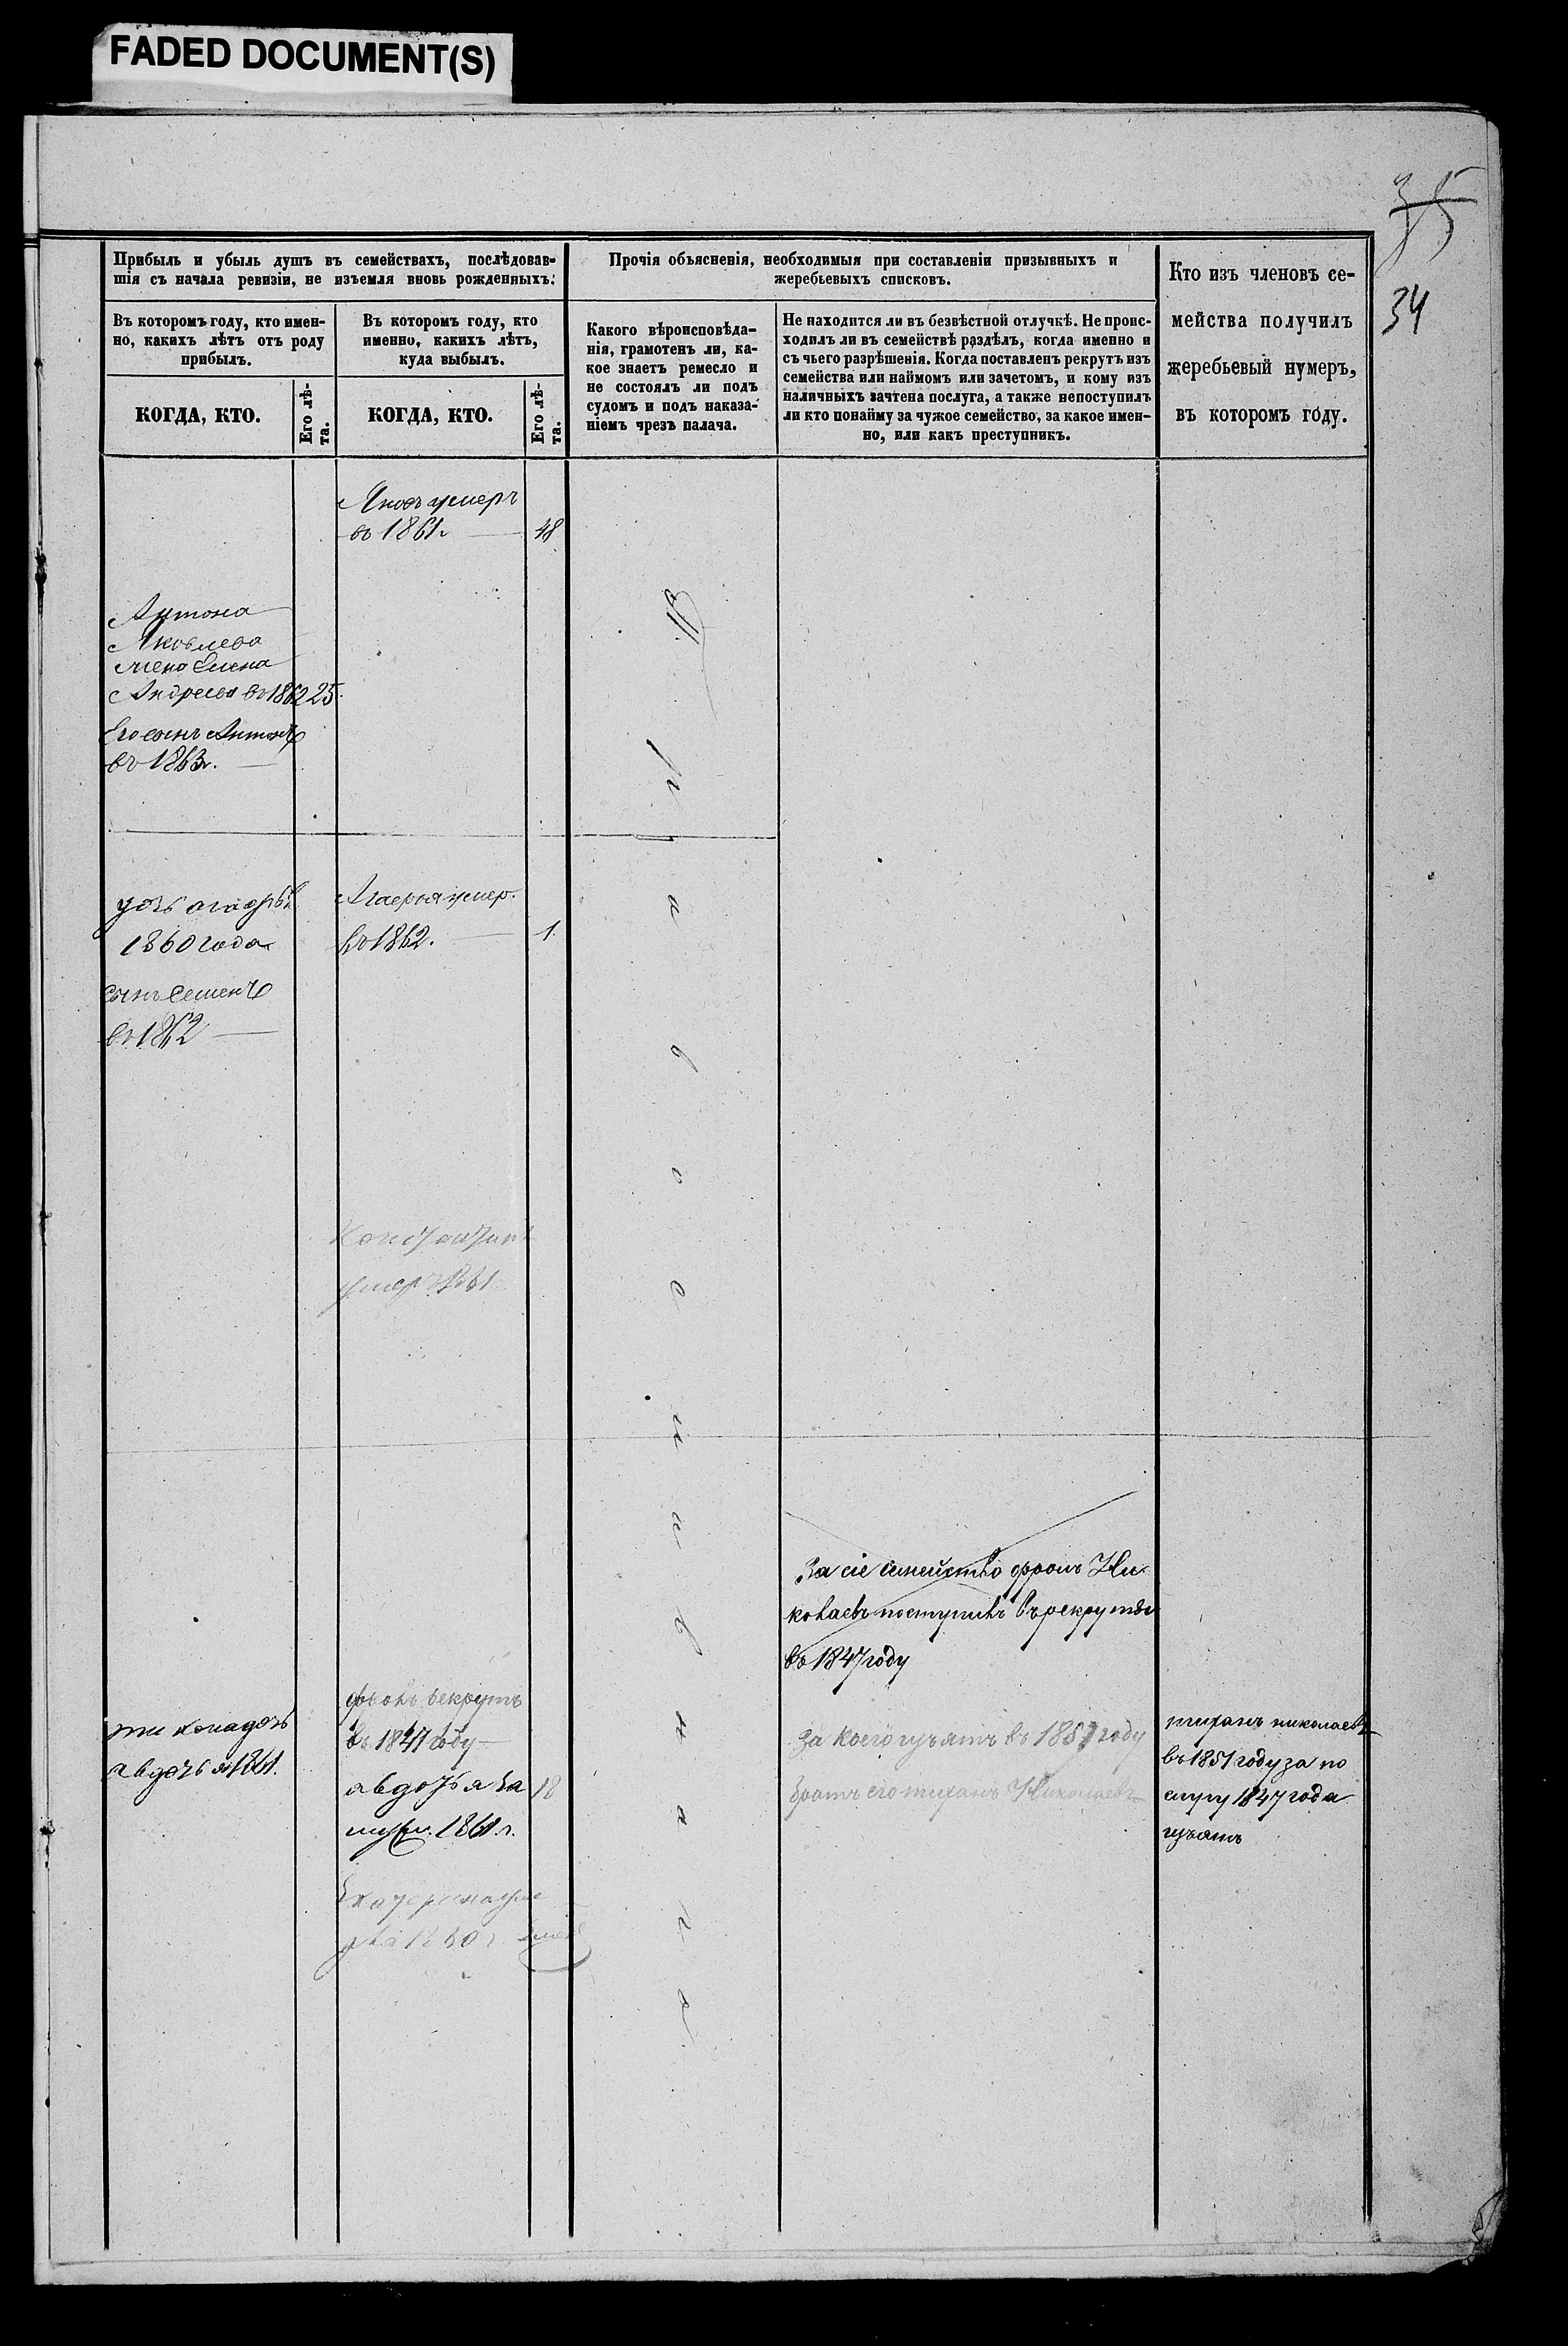 FADED DOCUMENT(S)
35
34
Прибыль и убыль душъ въ семействахъ, послѣдовав-
шія съ начала ревизіи, не изъемля вновь рожденныхъ.
Въ которомъ году, кто имен-
но, какихъ лѣтъ отъ роду
прибылъ.
КОГДА, КТО.
Его лѣ-
та.
Въ которомъ году, кто
именно, какихъ лѣтъ,
куда выбылъ.
КОГДА, КТО.
Его лѣ-
та.
Прочія объясненія, необходимыя при составленіи призывныхъ и
жеребьевыхъ списковъ.
Какого вѣроисповѣда-
нія, грамотенъ ли, ка-
кое знаетъ ремесло и
не состоялъ ли подъ
судомъ и подъ наказа-
ніемъ чрезъ палача.
Не находится ли въ безвѣстной отлучкѣ. Не проис-
ходилъ ли въ семействѣ раздѣлъ, когда именно и
съ чьего разрѣшенія. Когда поставленъ рекрутъ изъ
семейства или наймомъ или зачетомъ, и кому изъ
наличныхъ зачтена послуга, а также непоступилъ
ли кто понайму за чужое семейство, за какое имен-
но, или какъ преступникъ.
Кто изъ членовъ се-
мейства получилъ
жеребьевый нумеръ,
въ которомъ году.
Яковъ умеръ
въ 1861г. 48
Антона
Яковлева
жена Елена
Андреева въ 1862 25.
Его сынъ Антонъ
въ 1863г.
1860 года
Агафья умер.
въ 1862. 1.
сынъ Семенъ
въ 1862
Православнаго
Константинъ
умеръ 1861
За сіе семейство фролъ Ни
колаевъ поступилъ въ рекруты
въ 1847 году
фролъ рекрутъ
въ 1847 году
За коего изъятъ въ 1857 году
братъ его тиханъ Николаевъ
тихана дочь
авдотья 1861.
авдотья за 18
муж. 1861.г.
тиханъ николаевъ
въ 1851 году за по
слугу 1847 года
изъятъ
Екатерина уме
рла 1860 г.